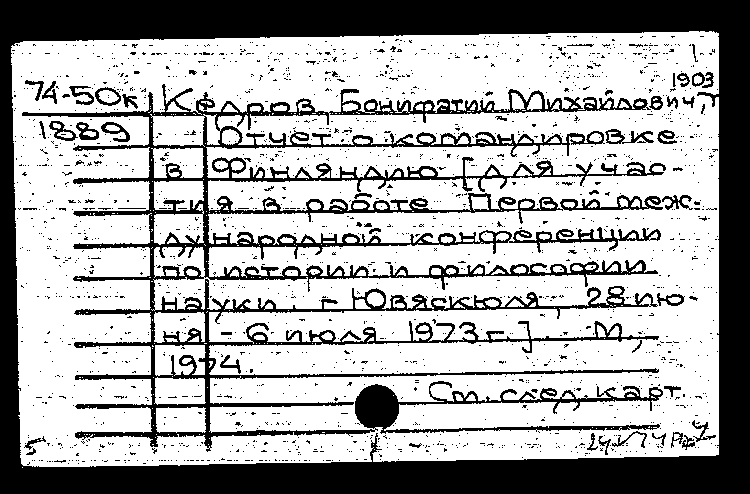 1
1903
74-50к Кедров, Бонифатий Михайлович,
1889 Отчет о командировке
в Финляндию [для учас-
тия в работе Первой меж-
дународной конференции
по истории и философии
науки. г. Ювяскюля, 28 ию-
ня - 6 июля 1973 г.]. М.,
1974.
См. след. карт
5